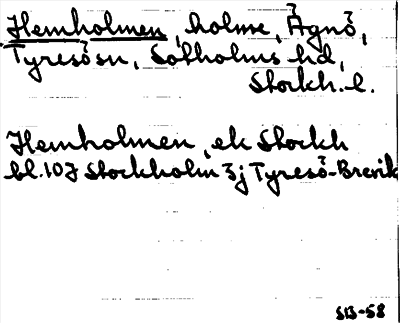 Hemholmen, holme, Ägnö,
Tyresö sn, Sotholms hd,
Stockh. l.
Hemholmen, ek Stockh
bl. 107 Stockholm 3j Tyresö-Brevik
SIB-58